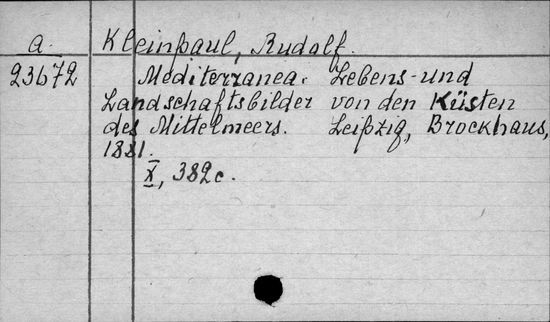 a. Kleinpaul, Rudolf.
23672 Mediterranea. Lebens- und
Landschaftsbilder von den Küsten
des Mittelmeers. Leipzig, Brockhaus,
1881.
X, 382c.